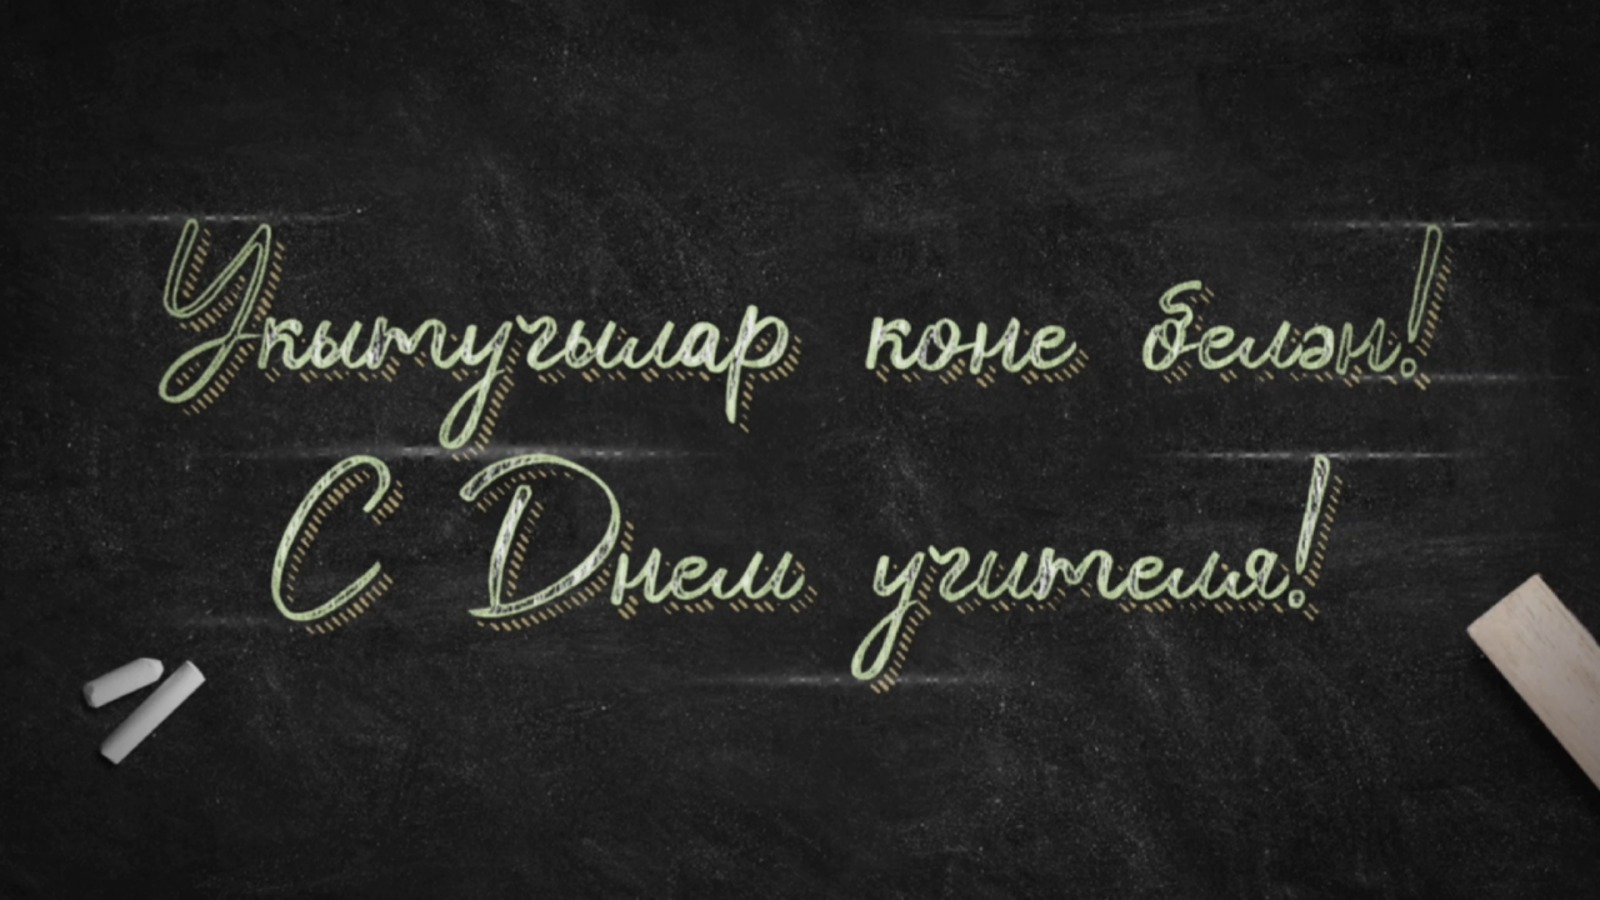 Укытучылар коне белән!
С Днем учителя!